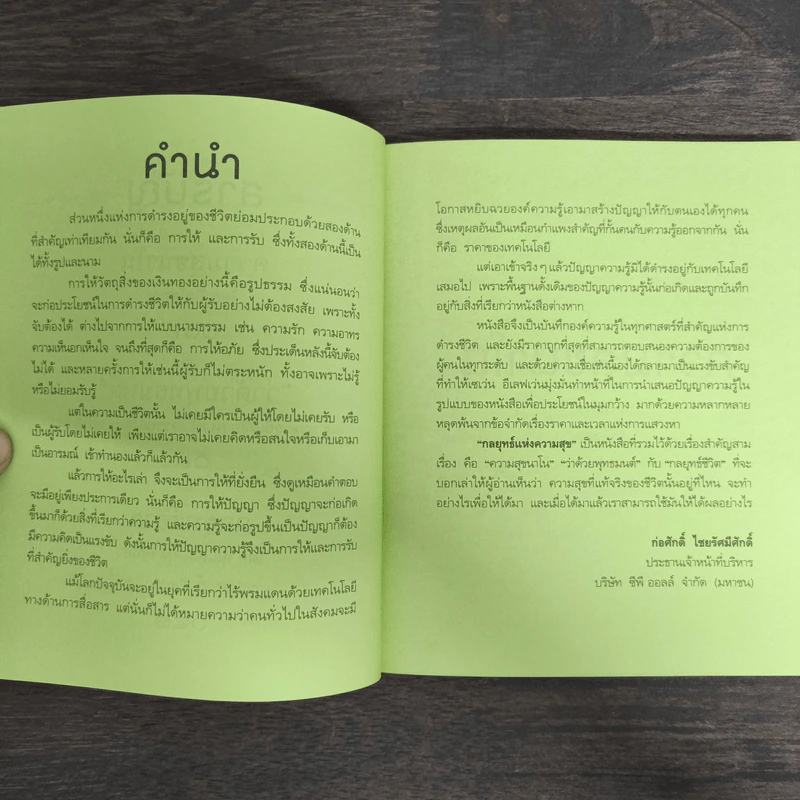 คำนำ
ส่วนหนึ่งแห่งการดำรงอยู่ของชีวิตย่อมประกอบด้วยสองด้าน
ที่สำคัญเท่าเทียมกัน นั่นก็คือ การให้ และการรับ ซึ่งทั้งสองด้านนี้เป็น
ได้ทั้งรูปและนาม
การให้วัตถุสิ่งของเงินทองอย่างนี้คือรูปธรรม ซึ่งแน่นอนว่า
จะก่อประโยชน์ในการดำรงชีวิตให้กับผู้รับอย่างไม่ต้องสงสัย เพราะทั้ง
จับต้องได้ ต่างไปจากการให้แบบนามธรรม เช่น ความรัก ความอาทร
ความเห็นอกเห็นใจ จนถึงที่สุดก็คือ การให้อภัย ซึ่งประเด็นหลังนี้จับต้อง
ไม่ได้ และหลายครั้งการให้เช่นนี้ผู้รับก็ไม่ตระหนัก ทั้งอาจเพราะไม่รู้
หรือไม่ยอมรับรู้
แต่ในความเป็นชีวิตนั้น ไม่เคยมีใครเป็นผู้ให้โดยไม่เคยรับ หรือ
เป็นผู้รับโดยไม่เคยให้ เพียงแต่เราอาจไม่เคยคิดหรือสนใจหรือเก็บเอามา
เป็นอารมณ์ เข้าทำนองแล้วก็แล้วกัน
แล้วการให้อะไรเล่า จึงจะเป็นการให้ที่ยั่งยืน ซึ่งดูเหมือนคำตอบ
จะมีอยู่เพียงประการเดียว นั่นก็คือ การให้ปัญญา ซึ่งปัญญาจะก่อเกิด
ขึ้นมาก็ด้วยสิ่งที่เรียกว่าความรู้ และความรู้จะก่อรูปขึ้นเป็นปัญญาก็ต้อง
มีความคิดเป็นแรงขับ ดังนั้นการให้ปัญญาความรู้จึงเป็นการให้และการรับ
ที่สำคัญยิ่งของชีวิต
แม้โลกปัจจุบันจะอยู่ในยุคที่เรียกว่าไร้พรมแดนด้วยเทคโนโลยี
ทางด้านการสื่อสาร แต่นั่นก็ไม่ได้หมายความว่าคนทั่วไปในสังคมจะมี
โอกาสหยิบฉวยองค์ความรู้เอามาสร้างปัญญาให้กับตนเองได้ทุกคน
ซึ่งเหตุผลอันเป็นเหมือนกำแพงสำคัญที่กั้นคนกับความรู้ออกจากกัน นั่น
ก็คือ ราคาของเทคโนโลยี
แต่เอาเข้าจริงๆ แล้วปัญญาความรู้มิได้ดำรงอยู่กับเทคโนโลยี
เสมอไป เพราะพื้นฐานดั้งเดิมของปัญญาความรู้นั้นก่อเกิดและถูกบันทึก
อยู่กับสิ่งที่เรียกว่าหนังสือต่างหาก
หนังสือจึงเป็นบันทึกองค์ความรู้ในทุกศาสตร์ที่สำคัญแห่งการ
ดำรงชีวิต และยังมีราคาถูกที่สุดที่สามารถตอบสนองความต้องการของ
ผู้คนในทุกระดับ และด้วยความเชื่อเช่นนี้เองได้กลายมาเป็นแรงขับสำคัญ
ที่ทำให้เซเว่น อีเลฟเว่นมุ่งมั่นทำหน้าที่ในการนำเสนอปัญญาความรู้ใน
รูปแบบของหนังสือเพื่อประโยชน์ในมุมกว้าง มากด้วยความหลากหลาย
หลุดพ้นจากข้อจำกัดเรื่องราคาและเวลาแห่งการแสวงหา
“กลยุทธ์แห่งความสุข” เป็นหนังสือที่รวมไว้ด้วยเรื่องสำคัญสาม
เรื่อง คือ “ความสุขนาโน” “ว่าด้วยพุทธมนต์” กับ “กลยุทธ์ชีวิต” ที่จะ
บอกเล่าให้ผู้อ่านเห็นว่า ความสุขที่แท้จริงของชีวิตนั้นอยู่ที่ไหน จะทำ
อย่างไรเพื่อให้ได้มา และเมื่อได้มาแล้วเราสามารถใช้มันให้ได้ผลอย่างไร
ก่อศักดิ์ ไชยรัศมีศักดิ์
ประธานเจ้าหน้าที่บริหาร
บริษัท ซีพี ออลล์ จำกัด (มหาชน)